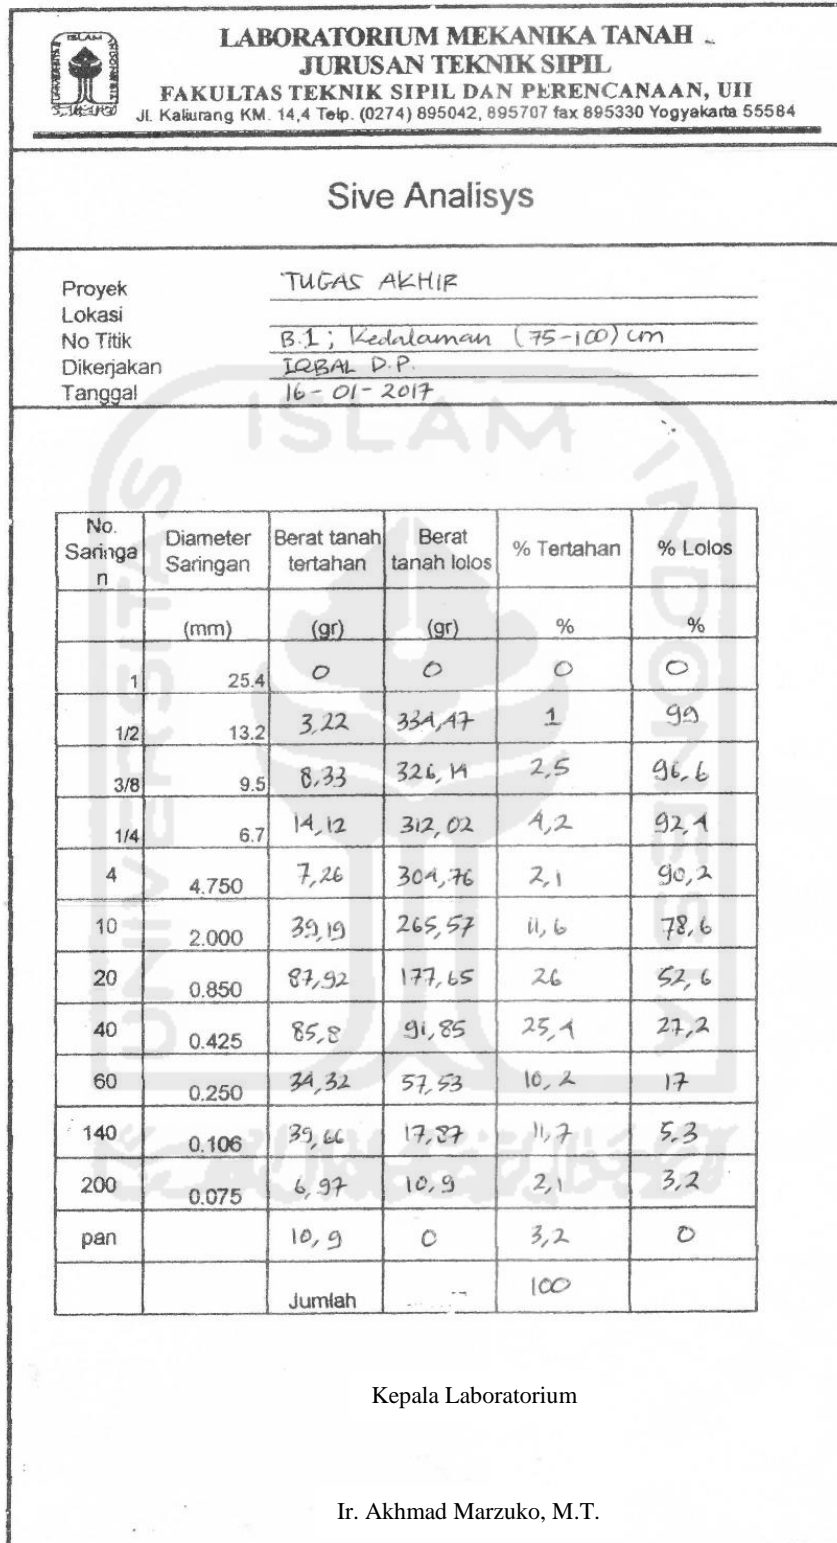 LABORATORIUM MEKANIKA TANAH
JURUSAN TEKNIK SIPIL
FAKULTAS TEKNIK SIPIL DAN PERENCANAAN, UII
Jl. Kaliurang KM. 14,4 Telp. (0274) 895042, 895707 fax 895330 Yogyakarta 55584
Sive Analisys
Proyek TUGAS AKHIR
Lokasi
No Titik B.1 ; Kedalaman (75-100) cm
Dikerjakan IQBAL D.P.
Tanggal 16-01-2017
ISLAM
UNIVERSITAS
INDONESIA
No. Saringa n Diameter Saringan Berat tanah tertahan Berat tanah lolos % Tertahan % Lolos
(mm) (gr) (gr) % %
1 25.4 0 0 0 0
1/2 13.2 3,22 334,47 1 99
3/8 9.5 8,33 326,14 2,5 96,6
1/4 6.7 14,12 312,02 4,2 92,4
4 4.750 7,26 304,76 2,1 90,2
10 2.000 39,19 265,57 11,6 78,6
20 0.850 87,92 177,65 26 52,6
40 0.425 85,8 91,85 25,4 27,2
60 0.250 34,32 57,53 10,2 17
140 0.106 39,66 17,87 11,7 5,3
200 0.075 6,97 10,9 2,1 3,2
pan 10,9 0 3,2 0
Jumlah 100
Kepala Laboratorium
Ir. Akhmad Marzuko, M.T.